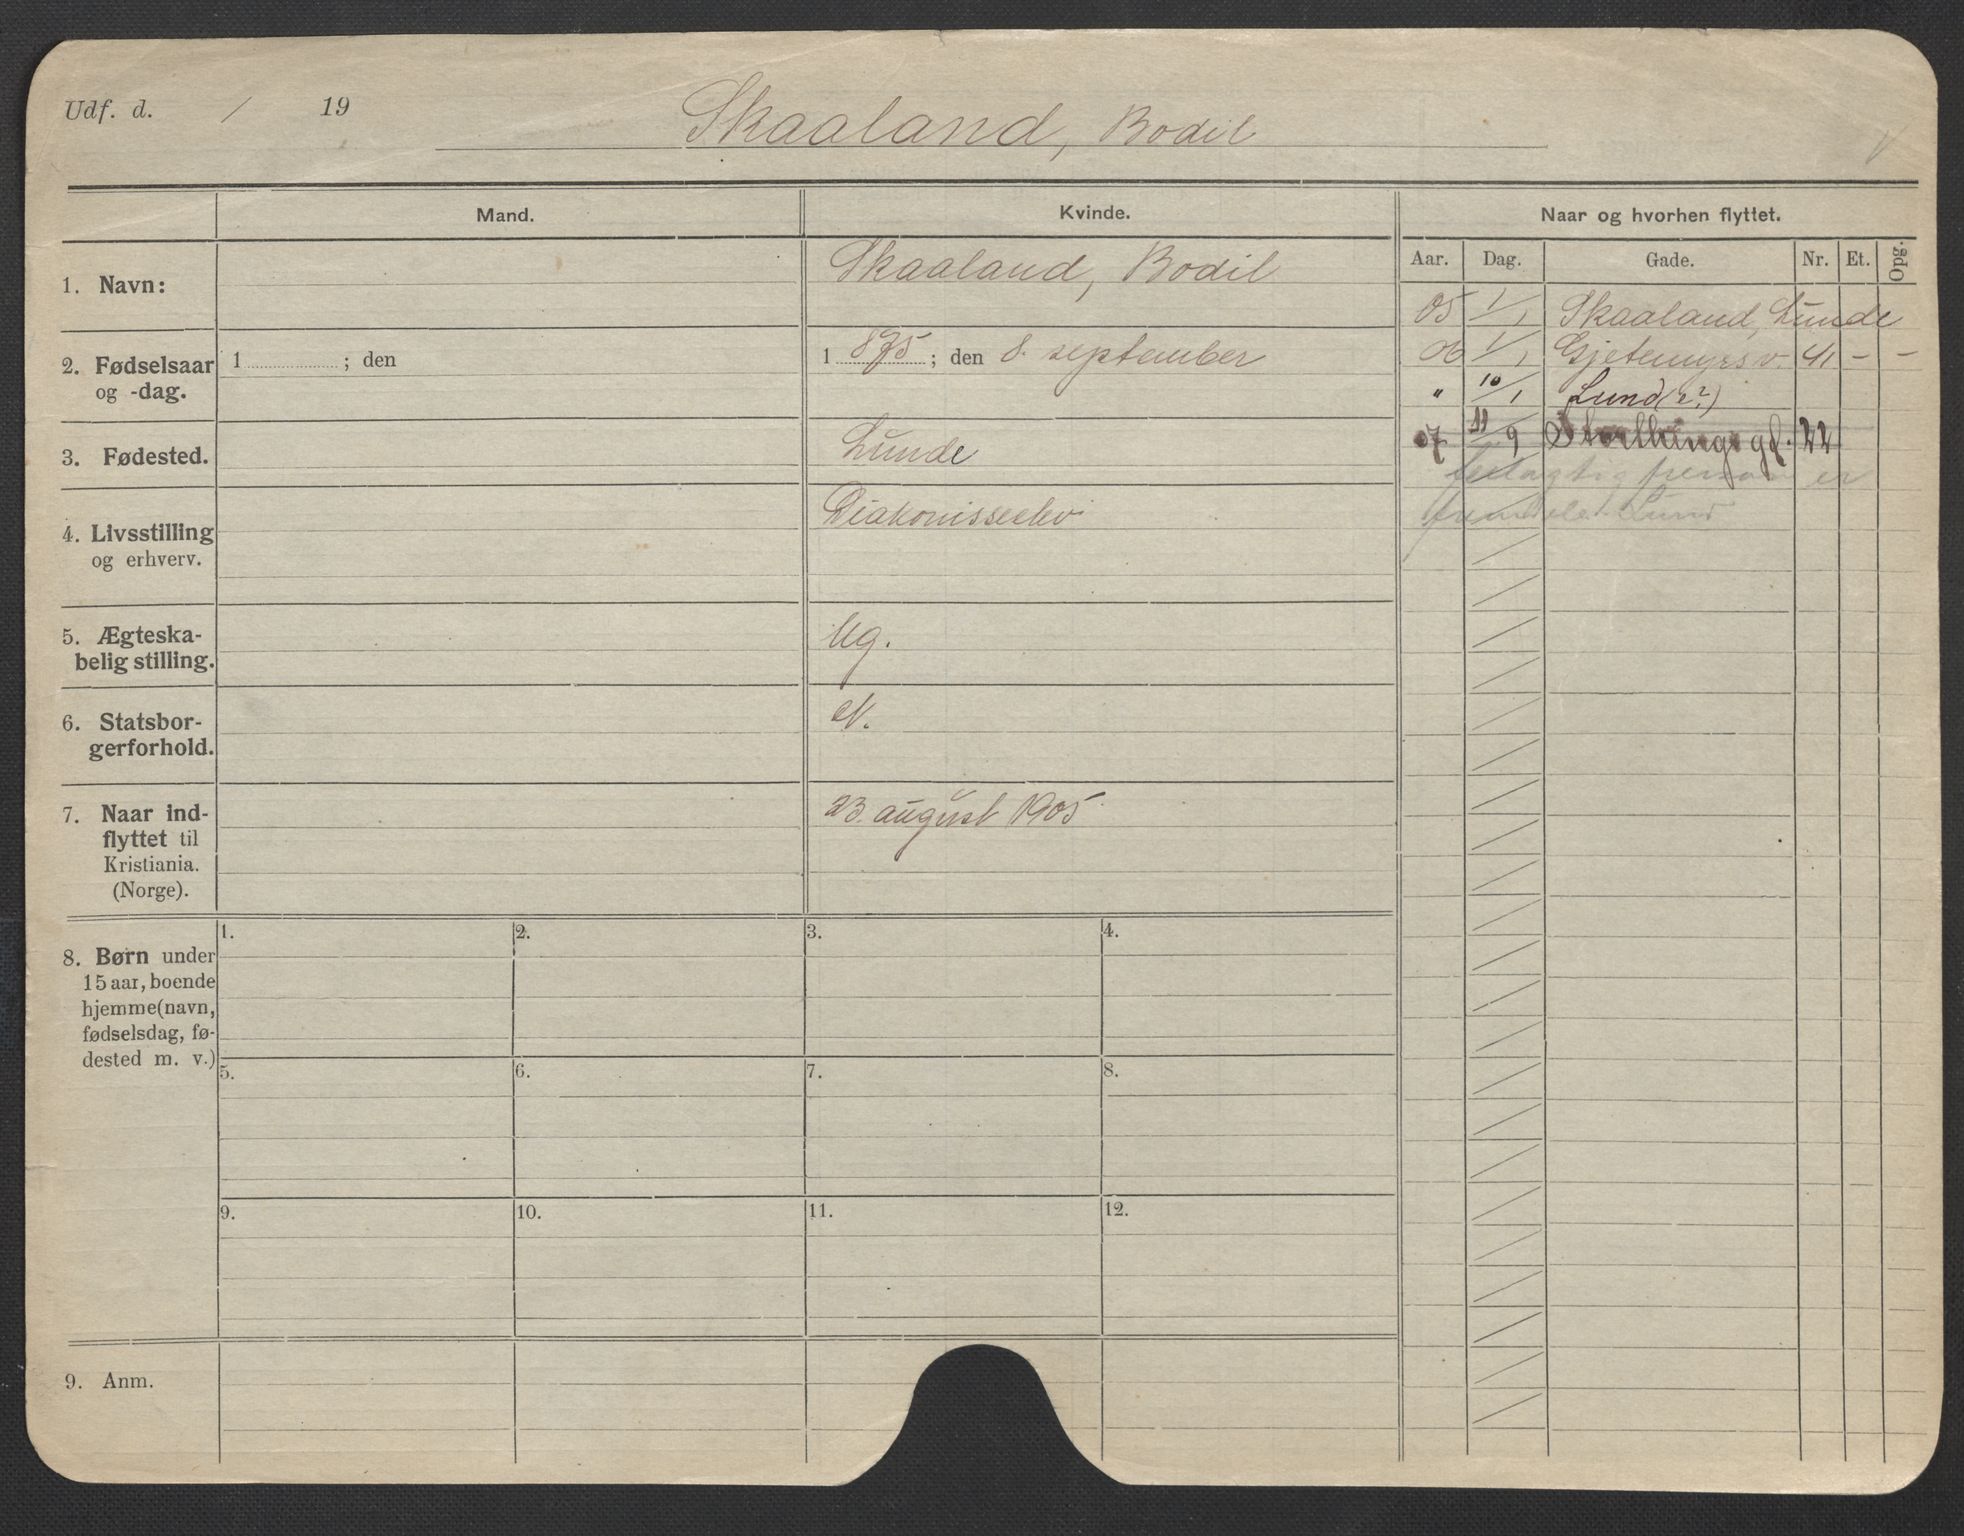 Udf. d. / 19
Skaaland, Bodil
Mand.
Kvinde.
Naar og hvorhen flyttet.
Aar. Dag. Gade. Nr. Et. Opg.
1. Navn:
Skaaland, Bodil
05 1/1 Skaaland, Lunde
2. Fødselsaar
og -dag.
1 ; den
1 875 ; den 8. september
06 1/1 Gjetemyrsv. 41 - -
" 10/1 Lund(e?)
3. Fødested.
Lunde
07 11/9 Storthingsgt. 22
feilagtig person er
Lund
4. Livsstilling
og erhverv.
Diakonisseelev
5. Ægteska-
belig stilling.
Ug.
6. Statsbor-
gerforhold.
N.
7. Naar ind-
flyttet til
Kristiania.
(Norge).
23. august 1905
8. Børn under
15 aar, boende
hjemme (navn,
fødselsdag, fø-
dested m. v.)
1. 2. 3. 4.
5. 6. 7. 8.
9. 10. 11. 12.
9. Anm.